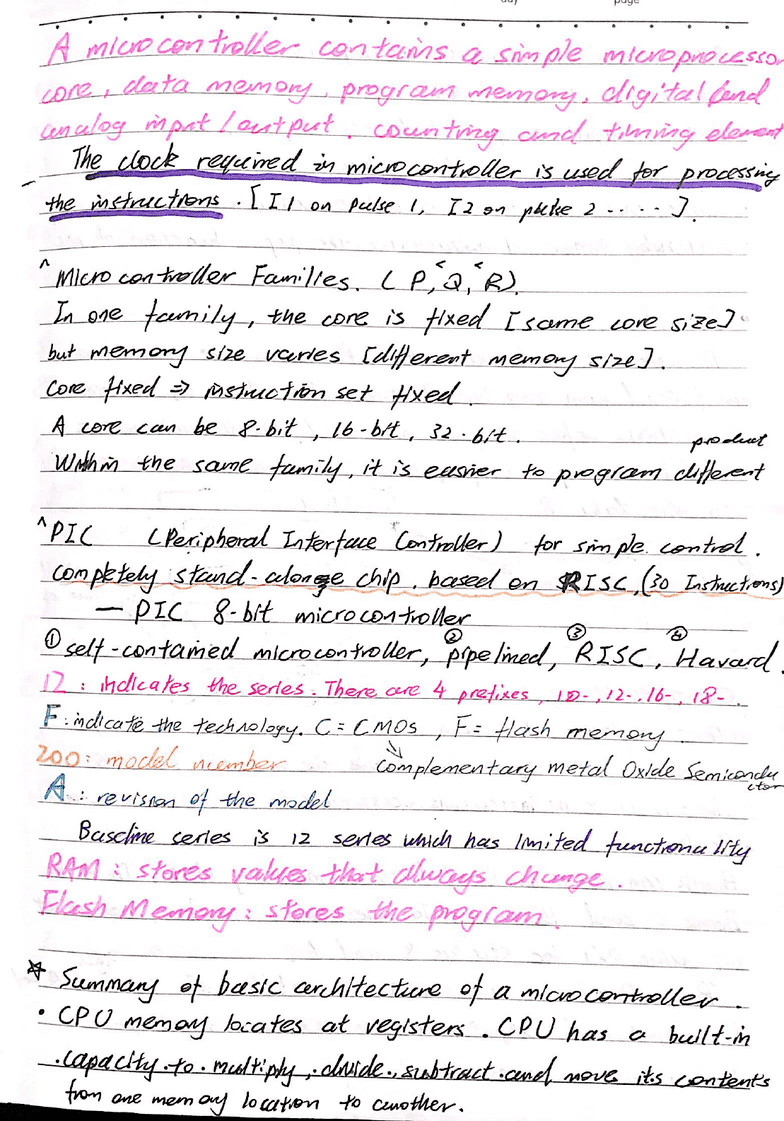 page
A microcontroller contains a simple microprocessor
core, data memory, program memory, digital and
analog input/output. counting and timing element
The clock required in microcontroller is used for processing
the instructions. [I1 on pulse 1, I2 on pulse 2 .....].
^ Microcontroller Families. (P, Q, R).
In one family, the core is fixed [same core size]
but memory size varies [different memory size].
core fixed ⇒ instruction set fixed.
A core can be 8-bit, 16-bit, 32-bit.
product
Within the same family, it is easier to program different
^ PIC (Peripheral Interface Controller) for simple control.
completely stand-alonge chip. based on RISC, (30 Instructions)
— PIC 8-bit microcontroller
① self-contained microcontroller, ② pipelined, ③ RISC, ④ Havard.
12: indicates the series. There are 4 prefixes, 10-, 12-, 16-, 18-.
F: indicate the technology. C = CMOs, F = flash memory.
200: model number complementary metal Oxide Semiconductor
A: revision of the model
Baseline series is 12 series which has limited functionality
RAM: stores values that always change.
Flash Memory: stores the program.
☆ Summary of basic architecture of a microcontroller.
• CPU memory locates at registers. CPU has a built-in
capacity to multiply, divide, subtract and move its contents
from one memory location to another.